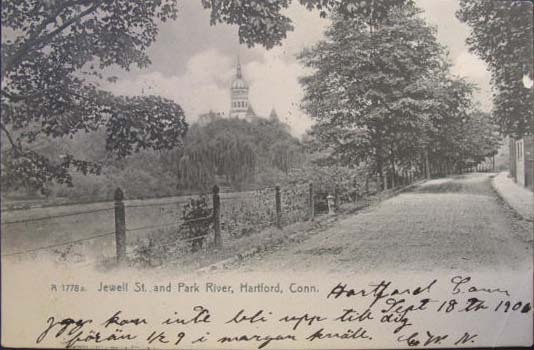 A 1778a. Jewell St. and Park River, Hartford, Conn.
Hartford Conn
Sept 18th 190
Jag kan inte bli upp till dig
förän ½ 9 i margan kväll. E. W. N.